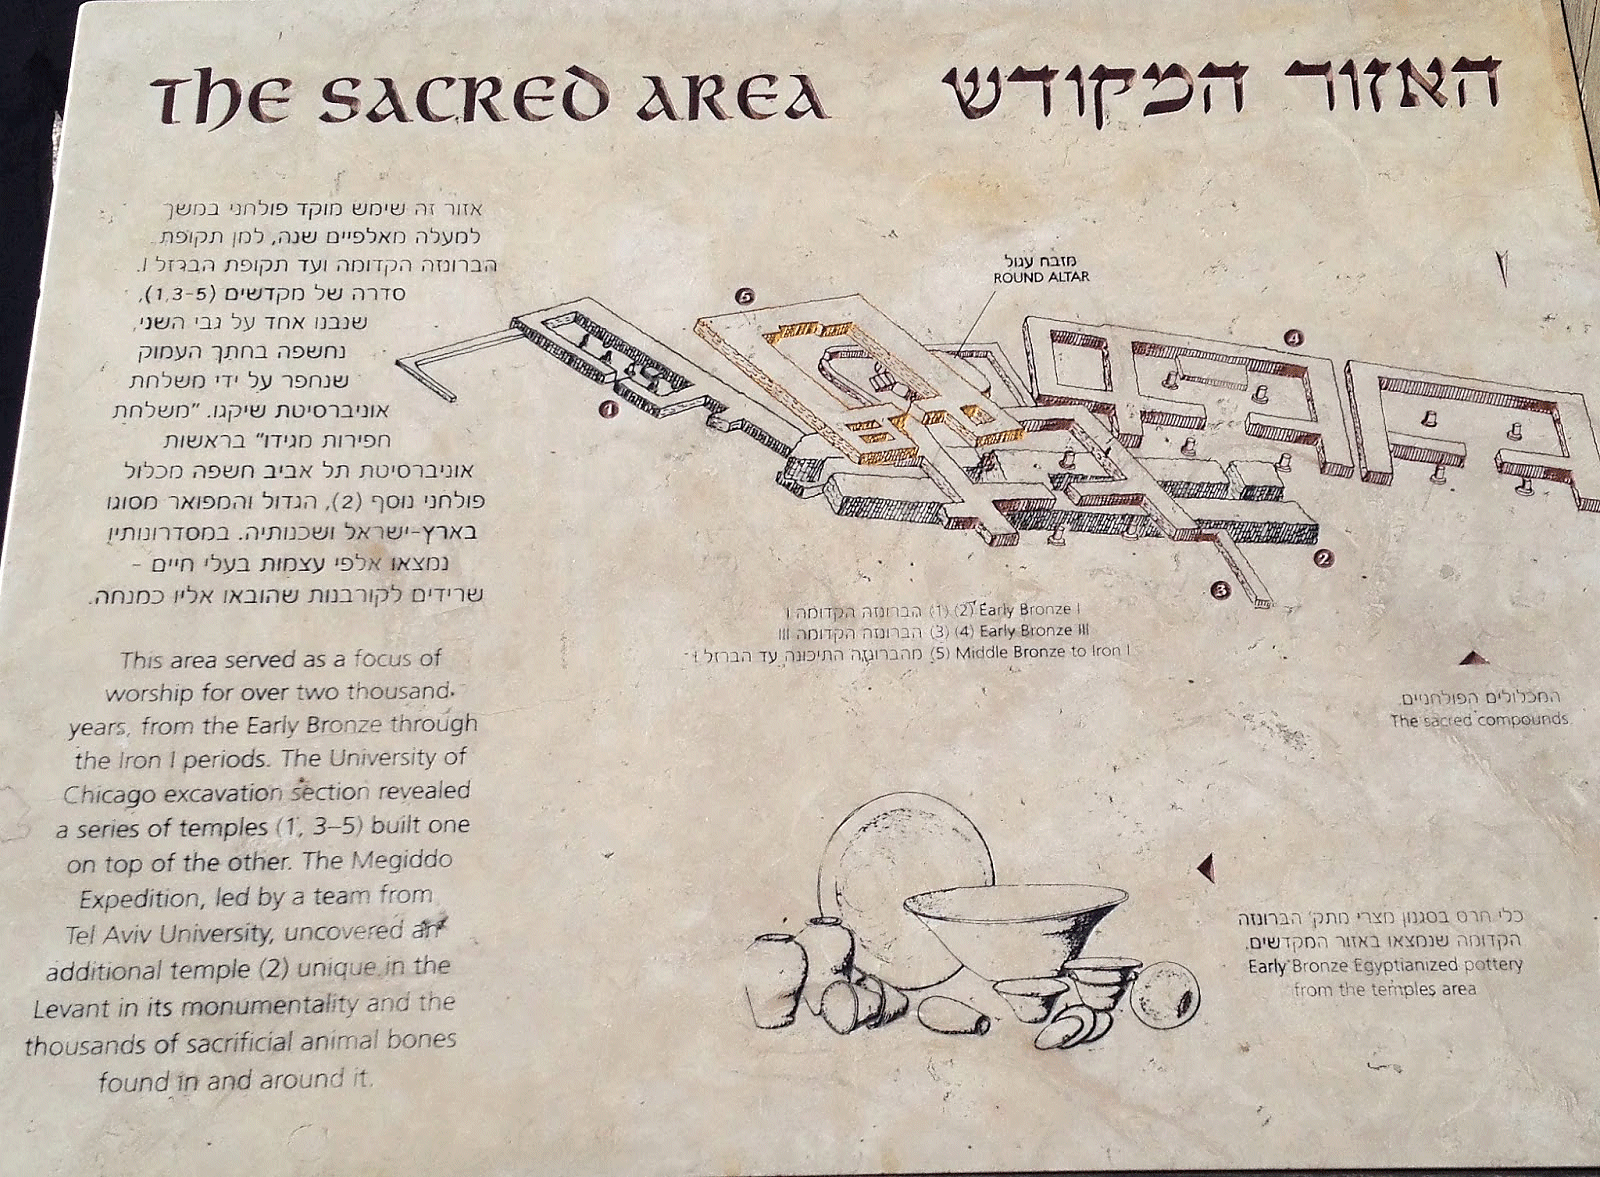 THE SACRED AREA
האזור המקודש
אזור זה שימש מוקד פולחני במשך
למעלה מאלפיים שנה, למן תקופת
הברונזה הקדומה ועד תקופת הברזל I.
סדרה של מקדשים (1,3-5),
שנבנו אחד על גבי השני,
נחשפה בחתך העמוק
שנחפר על ידי משלחת
אוניברסיטת שיקגו. "משלחת
חפירות מגידו" בראשות
אוניברסיטת תל אביב חשפה מכלול
פולחני נוסף (2), הגדול והמפואר מסוגו
בארץ-ישראל ושכנותיה. במסדרונותיו
נמצאו אלפי עצמות בעלי חיים -
שרידים לקורבנות שהובאו אליו כמנחה.
This area served as a focus of
worship for over two thousand
years, from the Early Bronze through
the Iron I periods. The University of
Chicago excavation section revealed
a series of temples (1, 3–5) built one
on top of the other. The Megiddo
Expedition, led by a team from
Tel Aviv University, uncovered an
additional temple (2) unique in the
Levant in its monumentality and the
thousands of sacrificial animal bones
found in and around it.
מזבח עגול
ROUND ALTAR
5
4
1
2
3
הברונזה הקדומה I (1) (2) Early Bronze I
הברונזה הקדומה III (3) (4) Early Bronze III
מהברונזה התיכונה עד הברזל I (5) Middle Bronze to Iron I
המכלולים הפולחניים.
The sacred compounds
כלי חרס בסגנון מצרי מתק' הברונזה
הקדומה שנמצאו באזור המקדשים.
Early Bronze Egyptianized pottery
from the temples area